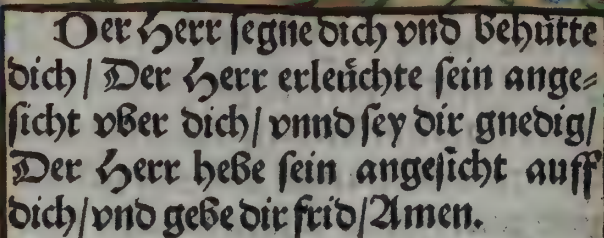 Der Herr segne dich vnd behütte
dich/ Der Herr erleüchte sein ange⸗
sicht vber dich/ vnnd sey dir gnedig/
Der Herr hebe sein angesicht auff
dich/ vnd gebe dir frid/ Amen.